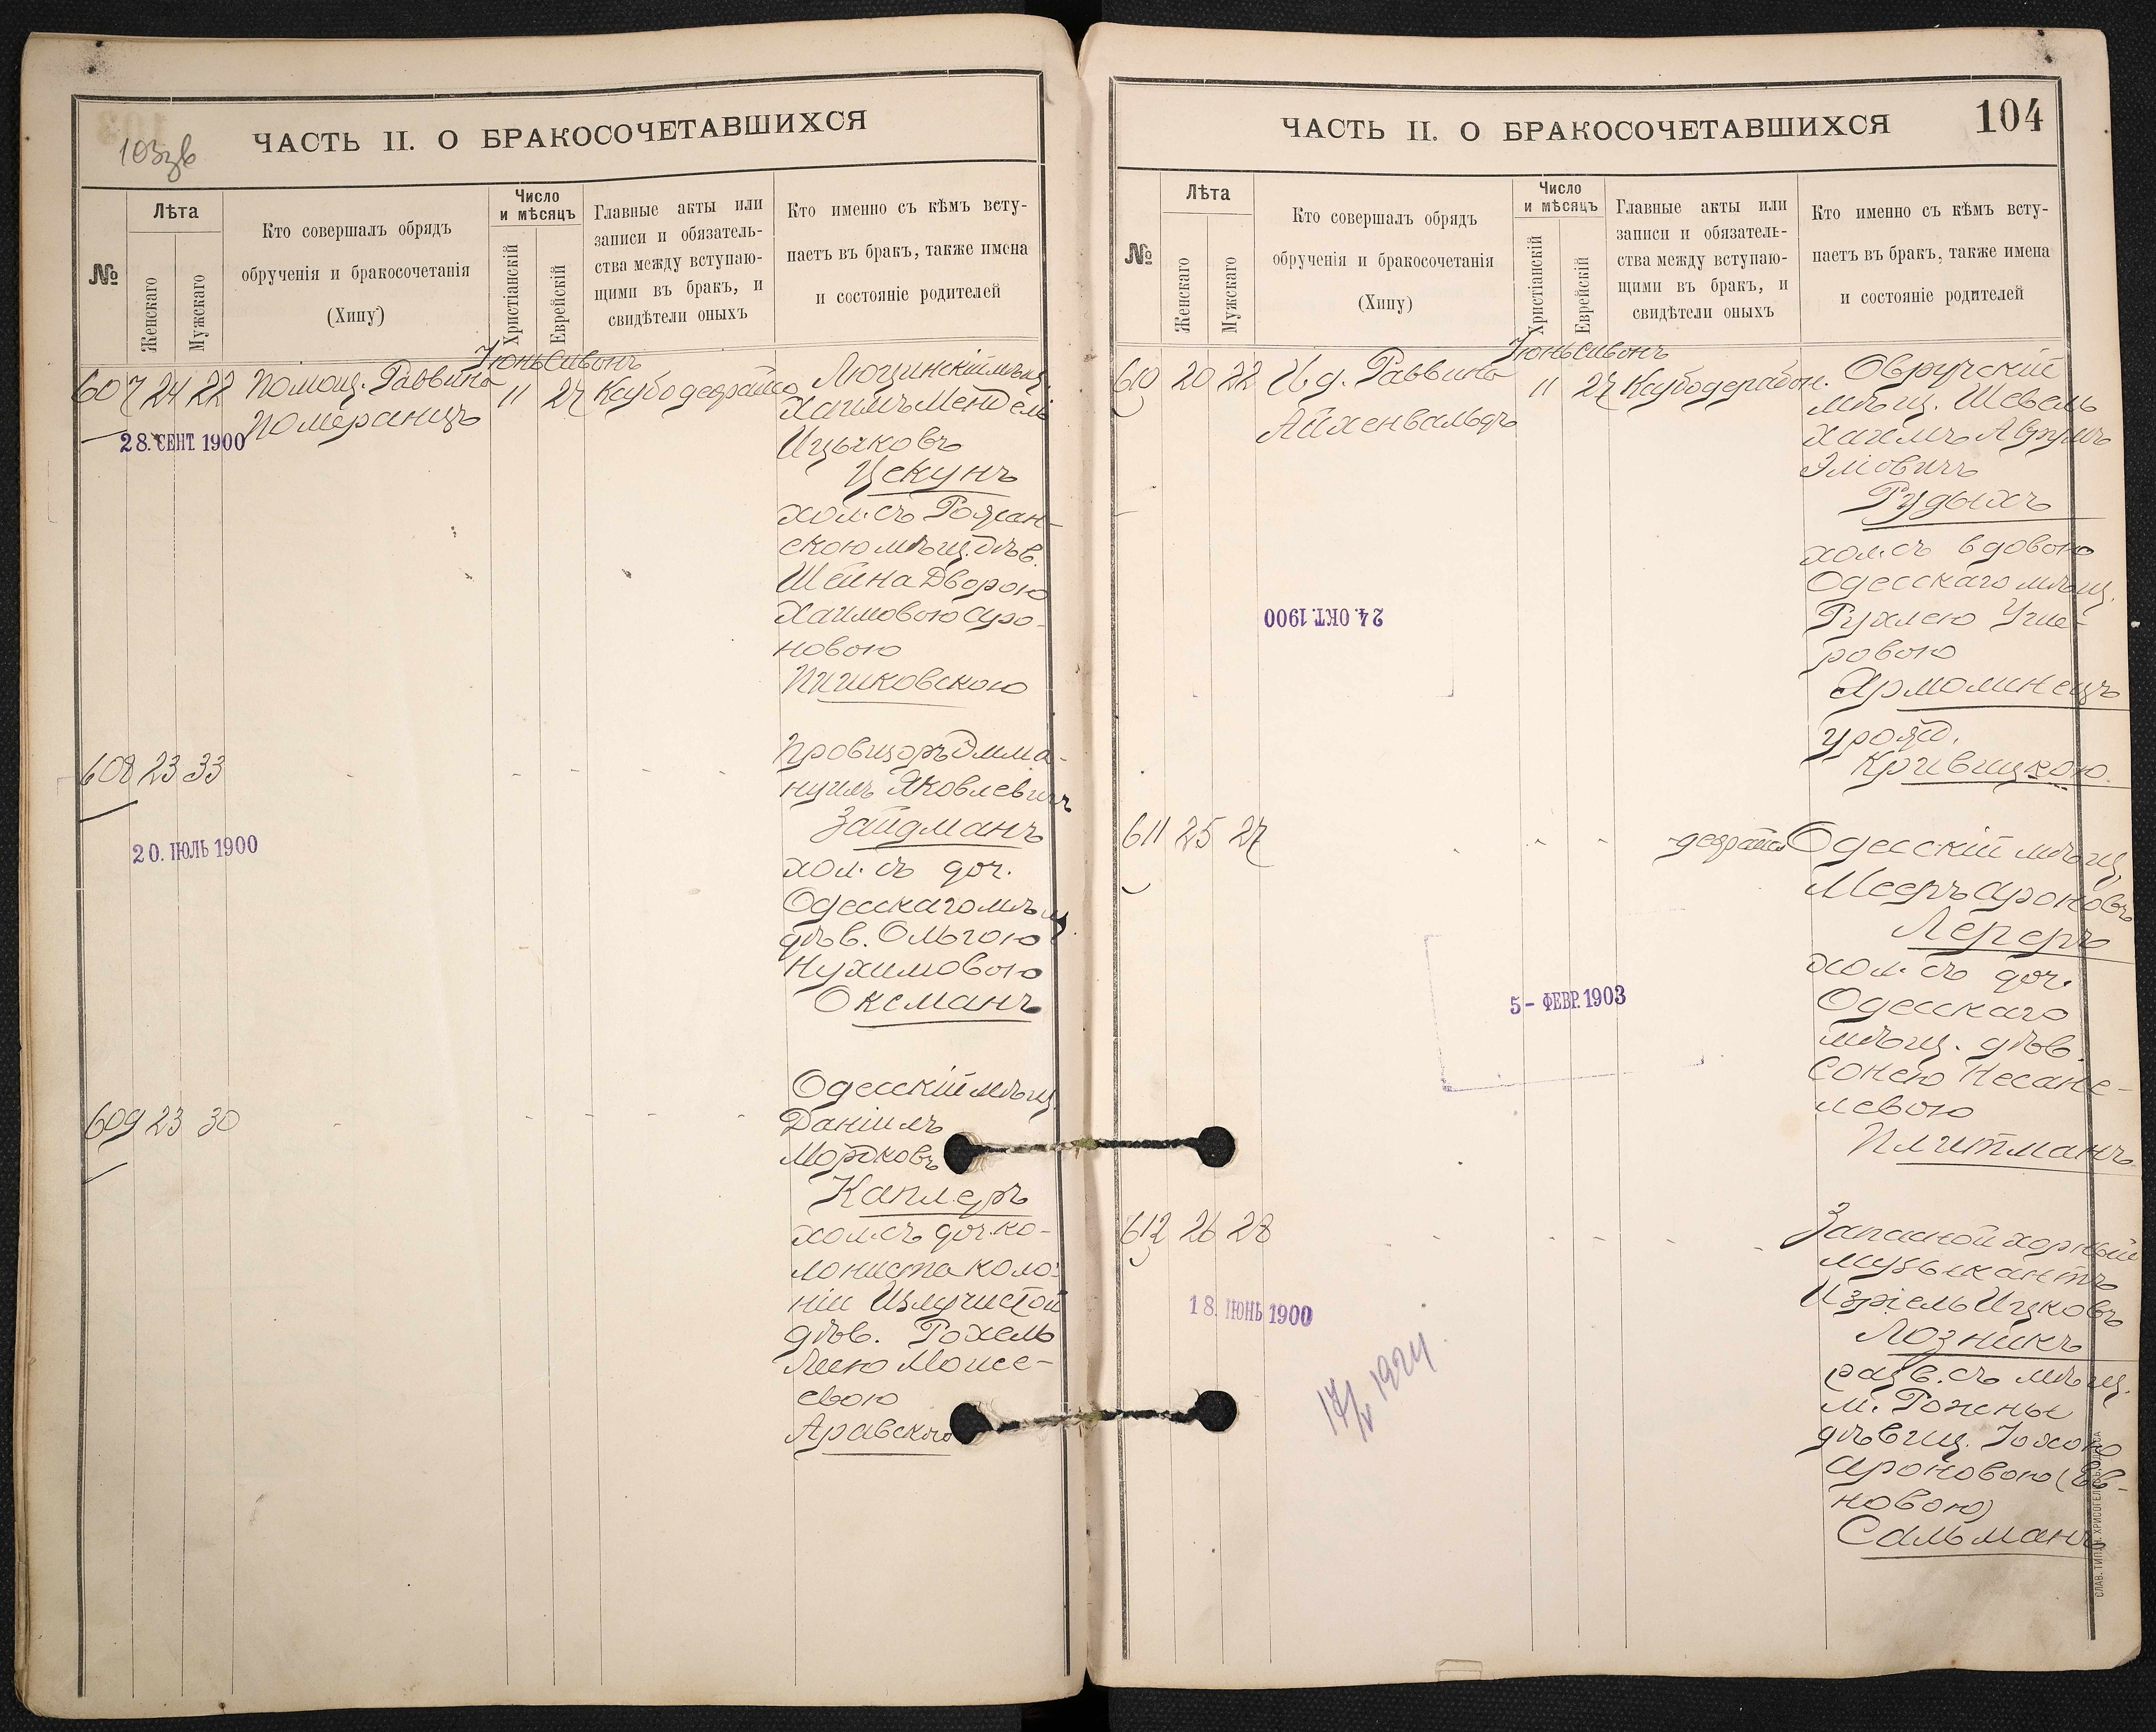 103зв
ЧАСТЬ II. О БРАКОСОЧЕТАВШИХСЯ
№
Лѣта
Женскаго
Мужскаго
Кто совершалъ обрядъ
обрученія и бракосочетанія
(Хипу)
Число
и мѣсяцъ
Христіанскій
Еврейскій
Главные акты или
записи и обязатель-
ства между вступаю-
щими въ бракъ, и
свидѣтели оныхъ
Кто именно съ кѣмъ всту-
паетъ въ бракъ, также имена
и состояніе родителей
Іюнь Сивонъ
607 24 22 Помощ. Раввина 11 27
Померанцъ
28. СЕНТ 1900
Люцинскій мѣщ.
Хаимъ Мендель
Ицыковъ
Цекунъ
хол. съ Рожан-
скою мѣщ. дѣв.
Шейна Дворою
Хаимовою Аро-
новою
Пишковскою
608 23 33
20. ІЮЛЬ 1900
Провизоръ Эмма-
нуилъ Яковлевичъ
Зайдманъ
хол. съ доч.
Одесскаго мѣщ.
дѣв. Ольгою
Нухимовою
Оксманъ
609 23 30
Одесскій мѣщ.
Даніилъ
Мордковъ
Каплеръ
хол. съ доч. ко-
лониста коло-
ніи Излучистой
дѣв. Рохель
Леею Моисе-
евою
Аравскою
ЧАСТЬ II. О БРАКОСОЧЕТАВШИХСЯ
104
№
Лѣта
Женскаго
Мужскаго
Кто совершалъ обрядъ
обрученія и бракосочетанія
(Хипу)
Число
и мѣсяцъ
Христіанскій
Еврейскій
Главные акты или
записи и обязатель-
ства между вступаю-
щими въ бракъ, и
свидѣтели оныхъ
Кто именно съ кѣмъ всту-
паетъ въ бракъ, также имена
и состояніе родителей
Іюнь Сивонъ
610 20 22 И д. Раввина 11 27
Айхенвальдъ
24. ОКТ. 1900
Овручскій
мѣщ. Шевель
Хаимъ Аврумъ
Эліовичъ
Рудыхъ
хол. съ вдовою
Одесскаго мѣщ.
Рухлею Уше-
ровою
Ярмолинецъ
урожд.
Кривицкою
611 25 27
5 - ФЕВР. 1903
Одесскій мѣщ.
Мееръ Ароновъ
Лереръ
хол. съ доч.
Одесскаго
мѣщ. дѣв.
Сонею Несане-
левою
Плитманъ
612 26 28
18. ІЮНЬ 1900
17/V 1924
Запасной хорный
музыкантъ
Изріель Ицковъ
Лозникъ
разв. съ мѣщ.
м.
дѣвиц.
Ароновою
новою)
Сальманъ
СЛАВ. ТИПОГ. ХРИСОГЕЛОСЪ, ОДЕССА